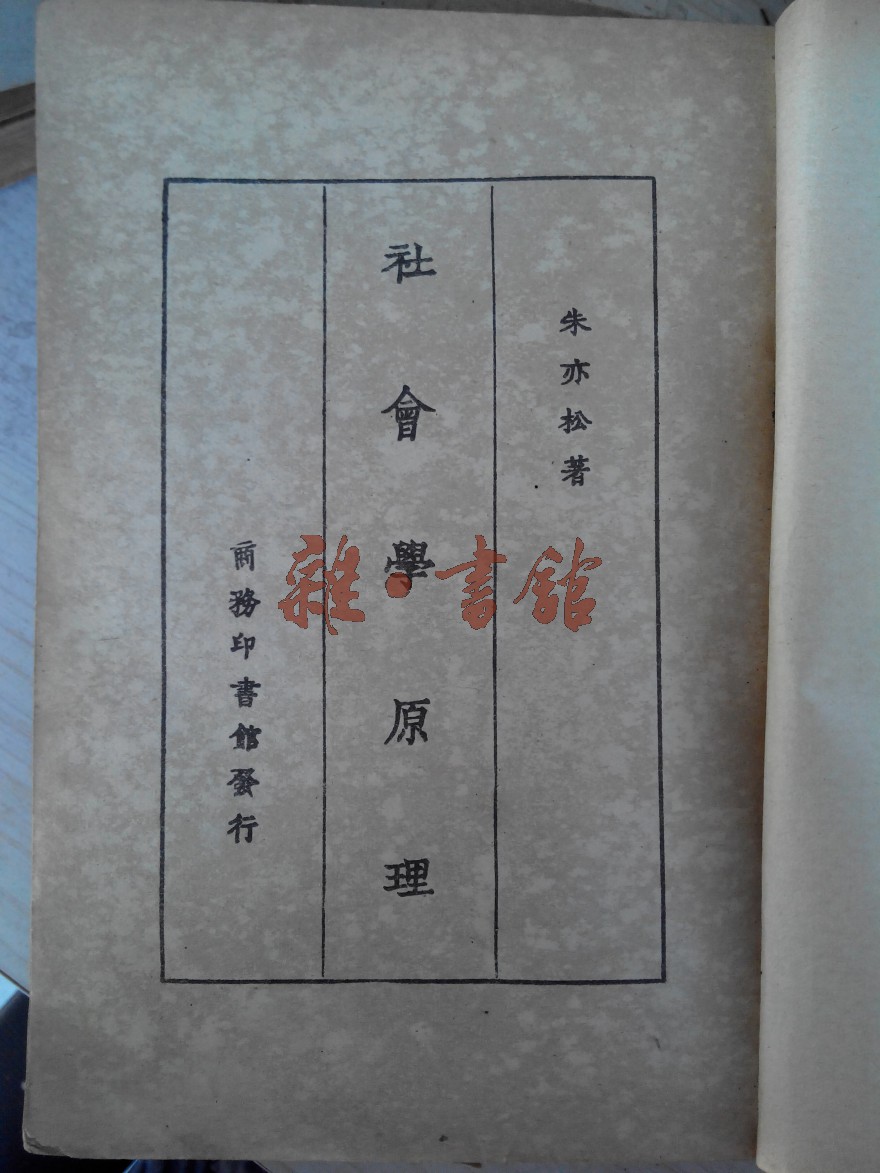 朱亦松著
社會學原理
商務印書館發行
雜·書館